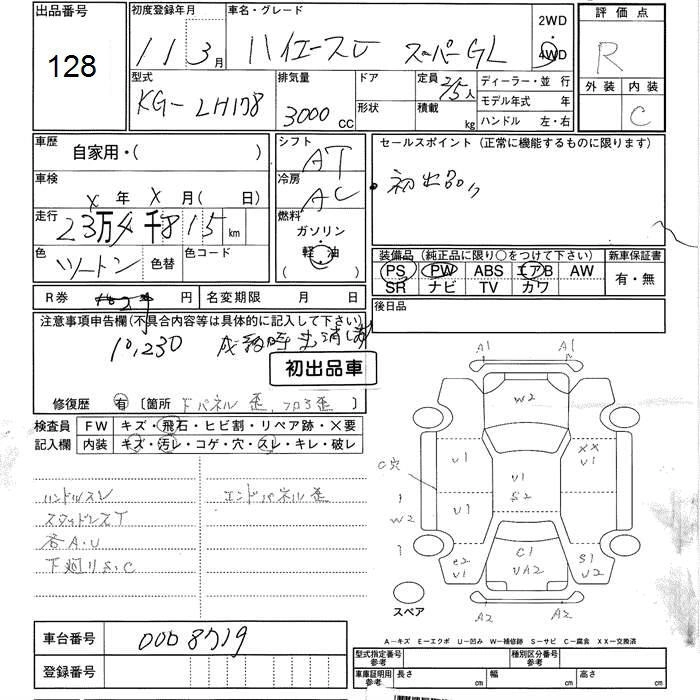 出品番号
128
初度登録年月
11年3月
車名・グレード
ハイエースV スーパーGL
2WD
4WD
評価点
R
外装 内装
C
型式
KG-LH178
排気量
3000cc
ドア
形状
定員
人
積載
kg
ディーラー・並行
モデル年式 年
ハンドル 左・右
車歴
自家用・( )
車検
x年x月( 日)
走行
km
色
ツートン
色替
色コード
シフト
AT
冷房
AC
燃料
ガソリン
軽油
( )
セールスポイント(正常に機能するものに限ります)
初出品
装備品(純正品に限り○をつけて下さい)
PS PW ABS エアB AW
SR ナビ TV カワ
新車保証書
有・無
後日品
R券 円
名変期限 月 日
注意事項申告欄(不具合内容等は具体的に記入して下さい)
10,230
初出品車
修復歴 有 〔箇所 歪 〕
検査員
記入欄
FW キズ・飛石・ヒビ割・リペア跡・X要
内装 キズ・汚レ・コゲ・穴・スレ・キレ・破レ
ハンドルスレ
スタッドレスT
各A.U
下廻りS.C
エンドパネル歪
A1 A1
W2
U1
XX
U1
C穴
U1
S2
W2
U1
C1
UA2
e2
U1
S1
U2
A2 A2
スペア
A-キズ E-エクボ U-凹み W-補修跡 S-サビ C-腐食 XX-交換済
車台番号
0008719
登録番号
型式指定番号
参考
種別区分番号
参考
車庫証明用
参考
長さ cm
幅 cm
高さ cm